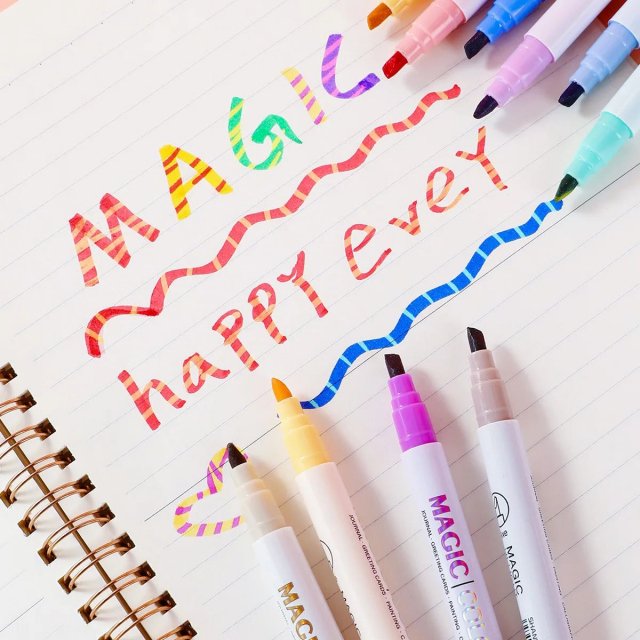 MAGIC
happy every
MAGIC
JOURNAL · GREETING CARDS · PAINTING
MAGIC
JOURNAL · GREETING CARDS · PAINTING
MAGIC